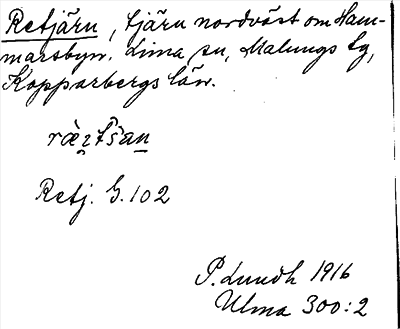 Retjärn, tjärn nordväst om Ham-
marsbyn. Lima sn, Malungs tg,
Kopparbergs län.
ræ̀ɪtšan
Retj. G. 102
P. Lundh 1916
Ulma 300:2